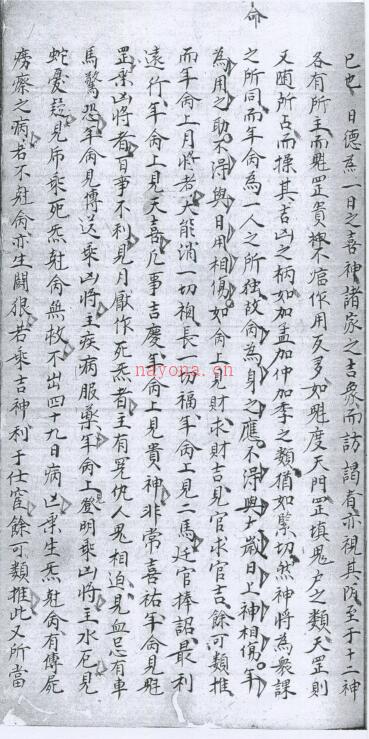 命
已也日德為一日之喜神諸家之吉象而訪謁者亦視其陰至于十二神
各有所主而魁罡貴作用反多如魁度天門罡填鬼户之類天罡則
又随所占而操其吉凶之柄如加孟加仲加季之類猶如緊切然神將為衆課
之所同而年命為一人之所独故命為身之應不淂與太歲日上神相傷年
為用之助不淂與日用相傷如命上見財求財吉見官求官吉餘可類推
而年命上月將者大能消一切禍長一切福年命上見二馬廷官捧詔最利
遠行年命上見天喜凡事吉慶年命上見貴神非常喜祐年命見魁
罡乗凶將者百事不利見月厭作死炁者主有冤仇人鬼相迫見血忌有車
馬驚恐年命見傳送乗凶將主疾病服藥年命上登明乗凶將主水厄見
蛇憂疑見吊乗死炁尅命無救不出四十九日病凶乗生炁尅命有傳屍
癆瘵之病若不尅命亦生鬪狠若乗吉神利于仕宦餘可類推此又所當
nayona.cn